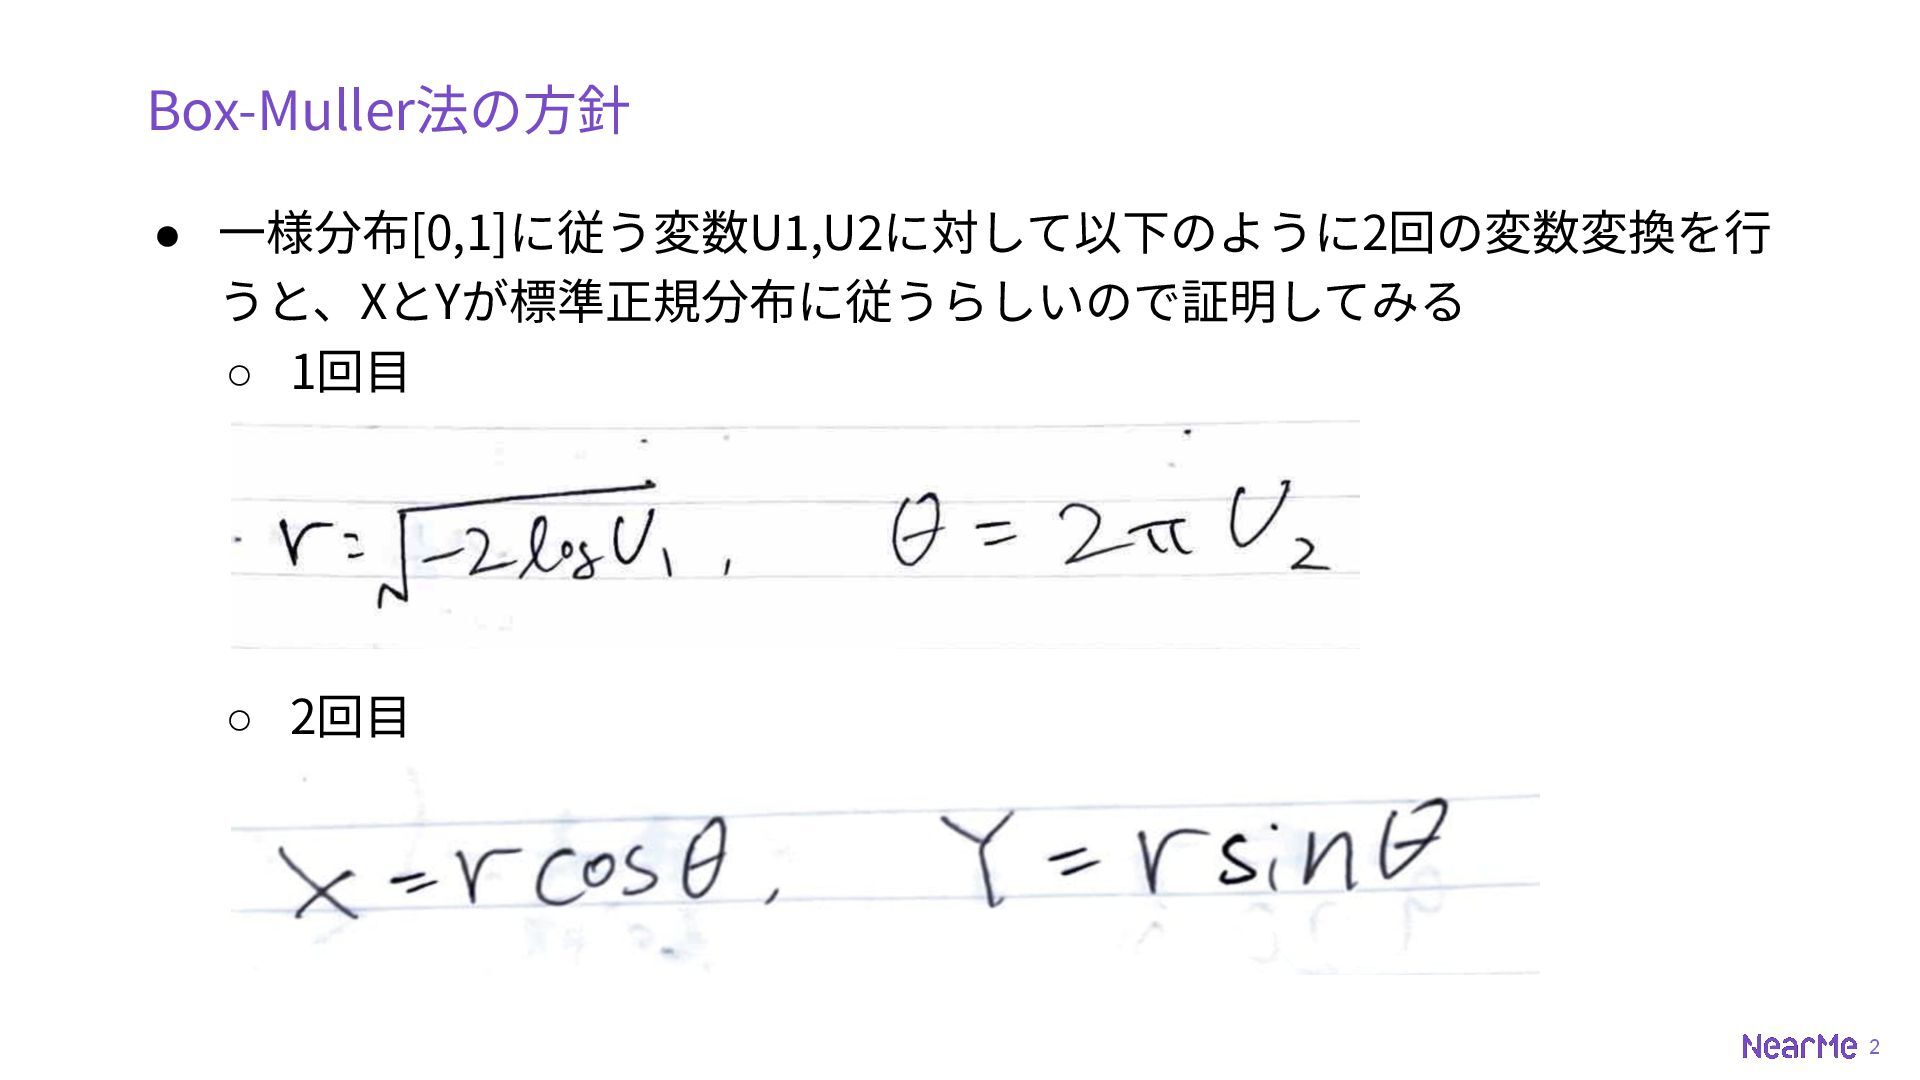 Box-Muller法の方針
● 一様分布[0,1]に従う変数U1,U2に対して以下のように2回の変数変換を行
うと、XとYが標準正規分布に従うらしいので証明してみる
○ 1回目
・r=√-2logU₁ , θ=2πU₂
○ 2回目
X=rcosθ, Y=rsinθ
NearMe 2